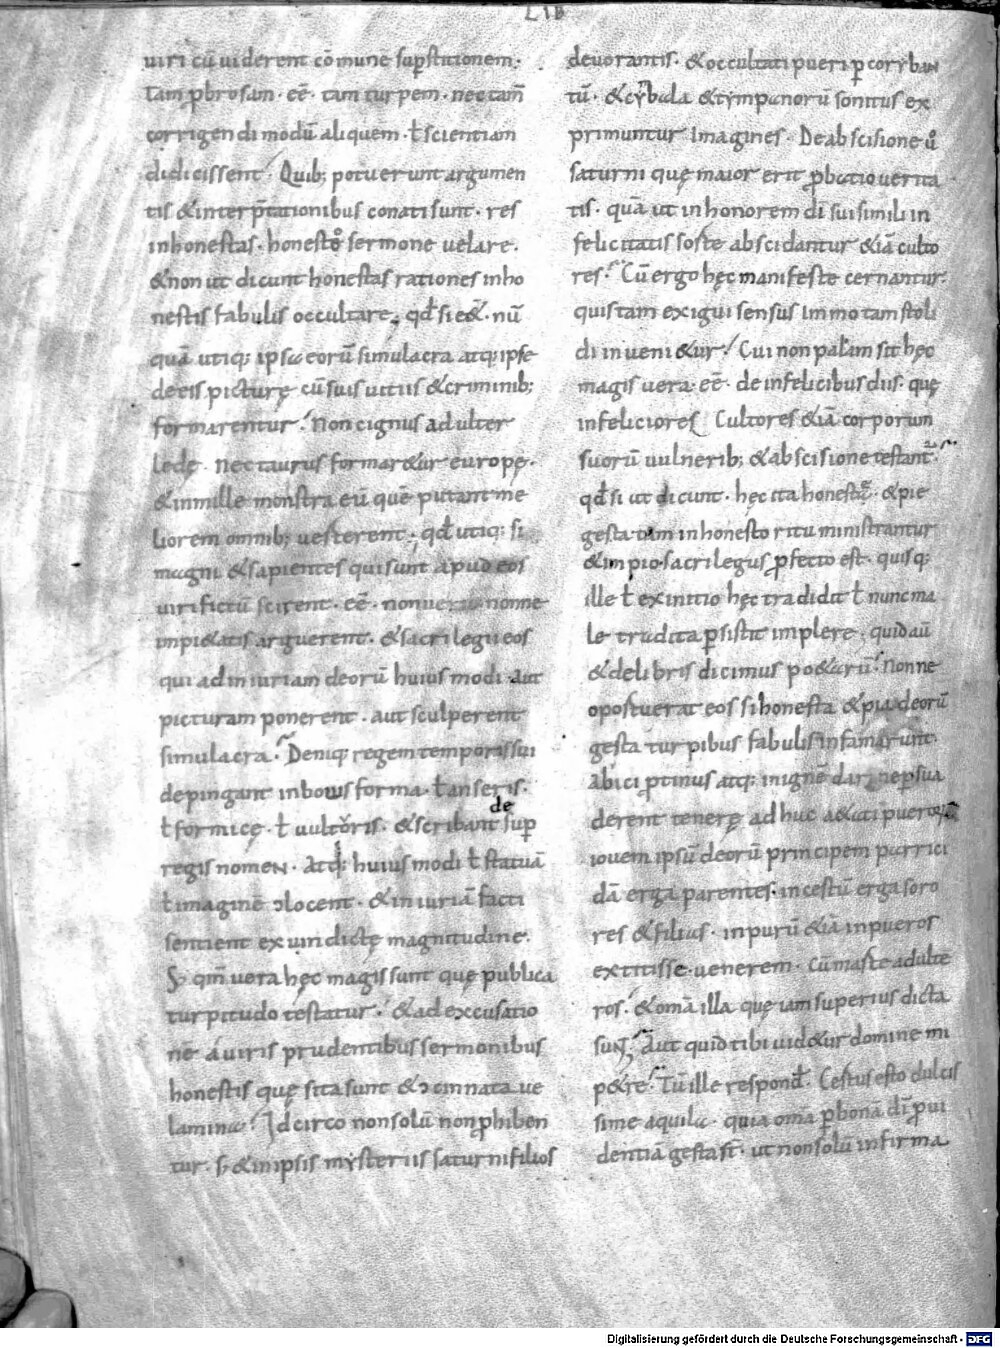 LIB
uiri cū uiderent cōmunē sup̄stitionem·
tam p̱brosam· eē· tam turpem· nec tam̄
corrigendi modū aliquem· ł scientiam
didicissent· Quib; potuerunt argumen
tis &interp̄tationibus conati sunt· res
inhonestas· honesto sermone uelare·
&non ut dicunt honestas rationes inho
nestis fabulis occultare, qđ si eēt· nū
quā utiq; ipsa eorū simulacra atq; ipse
deeis picturę cū suis uitiis &criminib;
formarentur· Non cignus adulter
ledę· nec taurus formar&ur europę·
&inmille monstra eū quē putant me
liorem omnib; uesterent; qđ utiq; si
magni &sapientes qui sunt apud eos
uiri fictū scirent· eē· non nonne
impi&atis arguerent· &sacrilegii eos
qui adiniuriam deorū huiusmodi aut
picturam ponerent· aut sculperent
simulacra· Deniq; regem temporis sui
depingant inbouis forma· ł anseris·
de
ł formicę· ł uulturis· &scribant sup̱
regis nomen· Atq; huiusmodi ł statuā
ł imaginē ɔlocent· &iniuriā facti
sentient ex uindictę magnitudine·
S; qm̄ uera hęc magis sunt quę publica
turpitudo testatur· &adexcusatio
nē a uiris prudentibus sermonibus
honestis quę sita sunt &ɔcinnata ue
lamina· Idcirco nonsolū non p̱hiben
tur· s; &inipsis mysteriis saturni filios
deuorantis· &occultati pueri p̱ coryban
tū· &cybala &tympanorū sonitus ex
primuntur imagines· De abscisione ů
saturni quę maior erit p̱batio uerita
tis· quā ut inhonorem dī sui simili in
felicitatis soste abscidantur &iā culto
res· Cū ergo hęc manifeste cernantur·
quis tam exigui sensus immo tam stoli
di inueni&ur· Cui non palam sit hęc
magis uera· eē· de infelicibus diis· quę
infeliciores Cultores &iā corporum
suorū uulnerib; &abscisione testant̄·
qđ si ut dicunt· hęc ita honestę· &pie
gesta tam inhonesto ritu ministrantur
&impio· sacrilegus p̱fecto est· quisq;
ille ł exinitio hęc tradidit ł nunc ma
le trudita p̱sistit implere· quid aū
&delibris dicimus po&arū· Nonne
opostuerat eos si honesta &pia deorū
gesta turpibus fabulis infamarunt·
abici p̱tinus atq; inignē dari nepsua
derent tenerę adhuc a&ati puerorū
iouem ipsū deorū principem parrici
dā erga parentes· incestū erga soro
res &filias· inpurū &iā inpueros
extitisse· uenerem· Cū maste adulte
ros· &om̄a illa quę iam superius dicta
sunt; Aut quid tibi uid&ur domine mi
p&re· Tū ille respond̄· Certus esto dulcis
sime aquila· quia om̄a p̱ bonā dī p̱ui
dentiā gesta st̄· ut nonsolū infirma